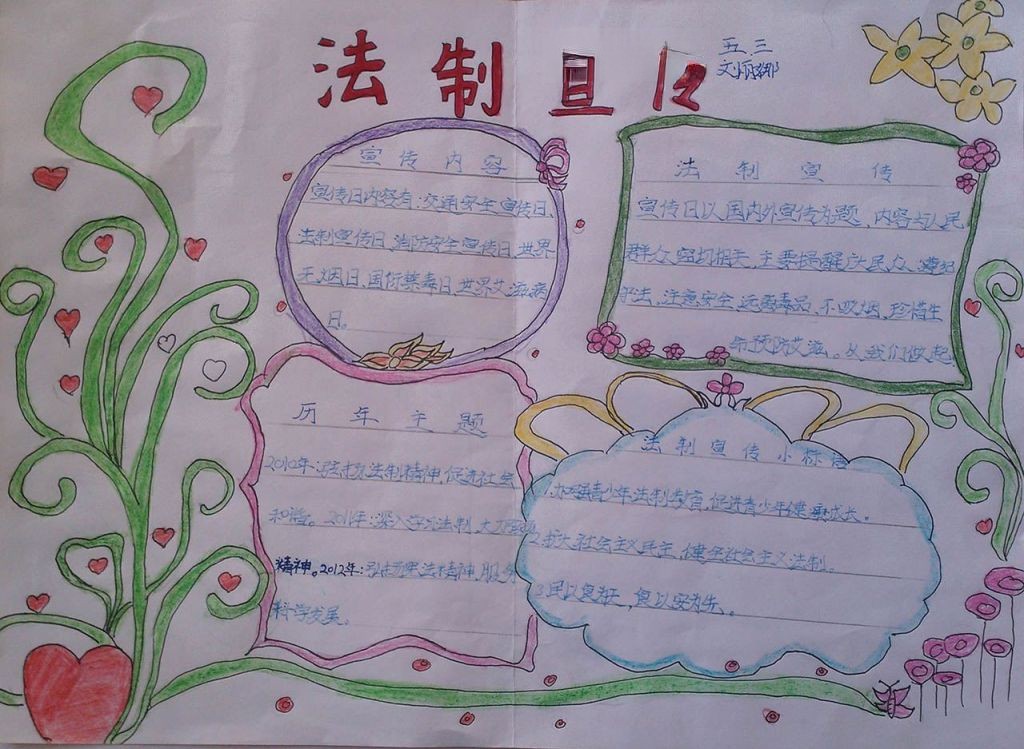 法制宣传
五.三
刘丽娜
宣传内容
宣传日内容有:交通安全宣传日、
法制宣传日、消防安全宣传日、世界
无烟日、国际禁毒日、世界艾滋病
日。
法制宣传
宣传日以国内外宣传为题、内容与人民
群众密切相关,主要提醒广大民众、遵纪
守法,注意安全,远离毒品,不吸烟,珍惜生
命预防艾滋。从我们做起
历年主题
2010年:弘扬法制精神,促进社会
和谐。2011年:深入学习法制,大力弘扬
精神。2012年:弘扬宪法精神,服务
科学发展。
法制宣传小标语
1.加强青少年法制教育,促进青少年健康成长。
2.扩大社会主义民主,健全社会主义法制。
3.民以食为天,食以安为先。